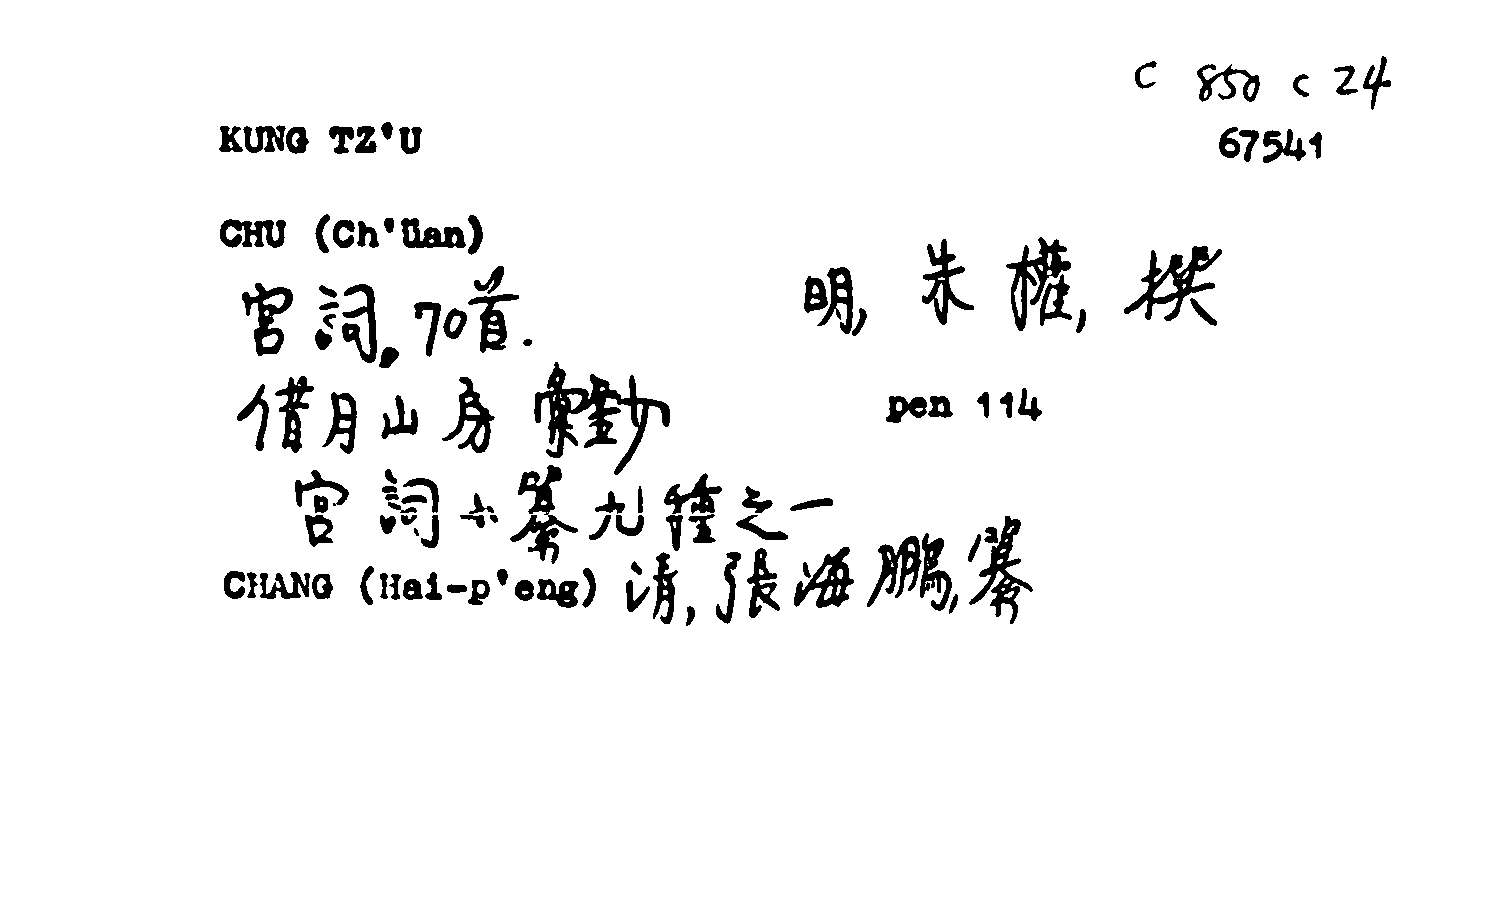 C 850 C 24
KUNG TZ'U
67541
CHU (Ch'üan)
宮詞, 70首.
明, 朱權, 撰
借月山房彙鈔
pen 114
宮詞小纂九種之一
CHANG (Hai-p'eng) 清, 張海鵬, 纂